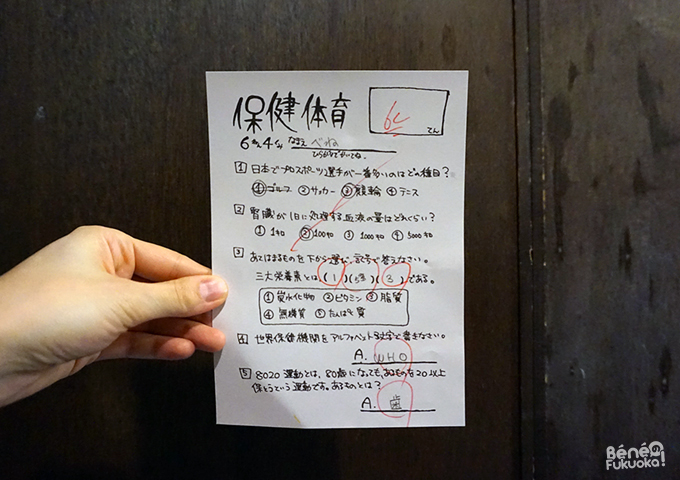 保健体育
60
てん
6ねん4くみ なまえ べね
ひらがなでかいてね。
1 日本でプロスポーツ選手が一番多いのはどの種目?
①ゴルフ ②サッカー ③競輪 ④テニス
2 腎臓が1日に処理する血液の量はどれくらい?
① 1キロ ② 100キロ ③ 1000キロ ④ 5000キロ
3 あてはまるものを下から選び、記号で答えなさい。
三大栄養素とは(1)( )(3)である。
①炭水化物 ②ビタミン ③脂質
④無機質 ⑤たんぱく質
4 世界保健機関をアルファベット3文字で書きなさい。
A. WHO
5 8020運動とは、80歳になっても、あるものを20以上
保とうという運動です。あるものとは?
A. 歯
Béné
Fukuoka!